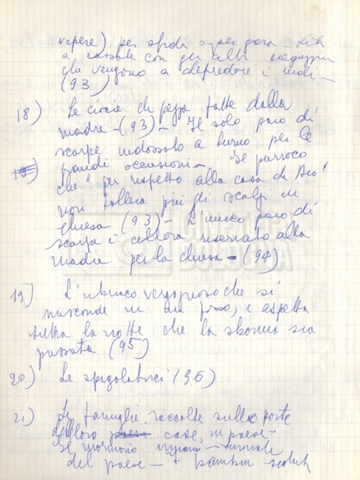 vipere) per sfida o per gara - Liti
a sassate con gli altri ragazzini
che vengono a depredare i nidi -
(93)
18) Le ciocie di pezza fatte dalla
madre - (93) - Il solo paio di
scarpe indossato a turno per le
grandi occasioni - Il parroco
che "per rispetto alla casa di Dio"
non tollera più gli scalzi in
chiesa - (93) - L'unico paio di
scarpe i riservato alla
madre per la chiesa - (94)
19) L'ubriaco vergognoso che si
nasconde in un fosso, e aspetta
tutta la notte che la sbornia sia
passata (95)
20) Le spigolatrici (96)
21) Le famiglie raccolte sulle porte
delle loro case, in paese -
Si
del paese - bambini